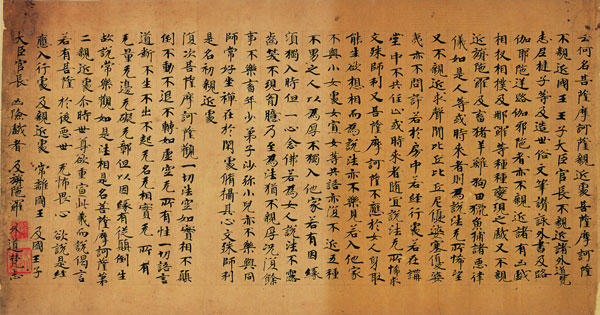 云何名菩薩摩訶薩親近處菩薩摩訶薩
不親近國王王子大臣官長不親近諸外道梵
志尼揵子等及造世俗文筆讚詠外書及路
伽耶陀逆路伽耶陀者亦不親近諸有凶戲
相杈相撲及那羅等種種變現之戲又不親
近旃陀羅及畜猪羊雞狗田獵魚捕諸惡律
儀如是人等或時來者則為說法无所悕望
又不親近求聲聞比丘比丘尼優婆塞優婆
夷亦不問訊若於房中若經行處若在講
堂中不共住止或時來者隨宜說法无所悕求
文殊師利又菩薩摩訶薩不應於女人身取
能生欲想相而為說法亦不樂見若入他家
不與小女處女寡女等共語亦復不近五種
不男之人以為親厚不獨入他家若有因緣
須獨入時但一心念佛若為女人說法不露
齒笑不現胸臆乃至為法猶不親厚況復餘
事不樂畜年少弟子沙彌小兒亦不樂與同
師常好坐禪在於閑處脩攝其心文殊師利
是名初親近處
復次菩薩摩訶薩觀一切法空如實相不顛
倒不動不退不轉如虛空无所有性一切語言
道斷不生不出不起无名无相實无所有
无量无邊无礙无鄣但以因緣有從顛倒生
故說常樂觀如是法相是名菩薩摩訶薩第
二親近處尒時世尊欲重宣此義而說偈言
若有菩薩 於後惡世 无怖畏心 欲說是經
應入行處 及親近處 常離國王 及國王子
大臣官長 凶險戲者 及旃陀羅 外道梵志